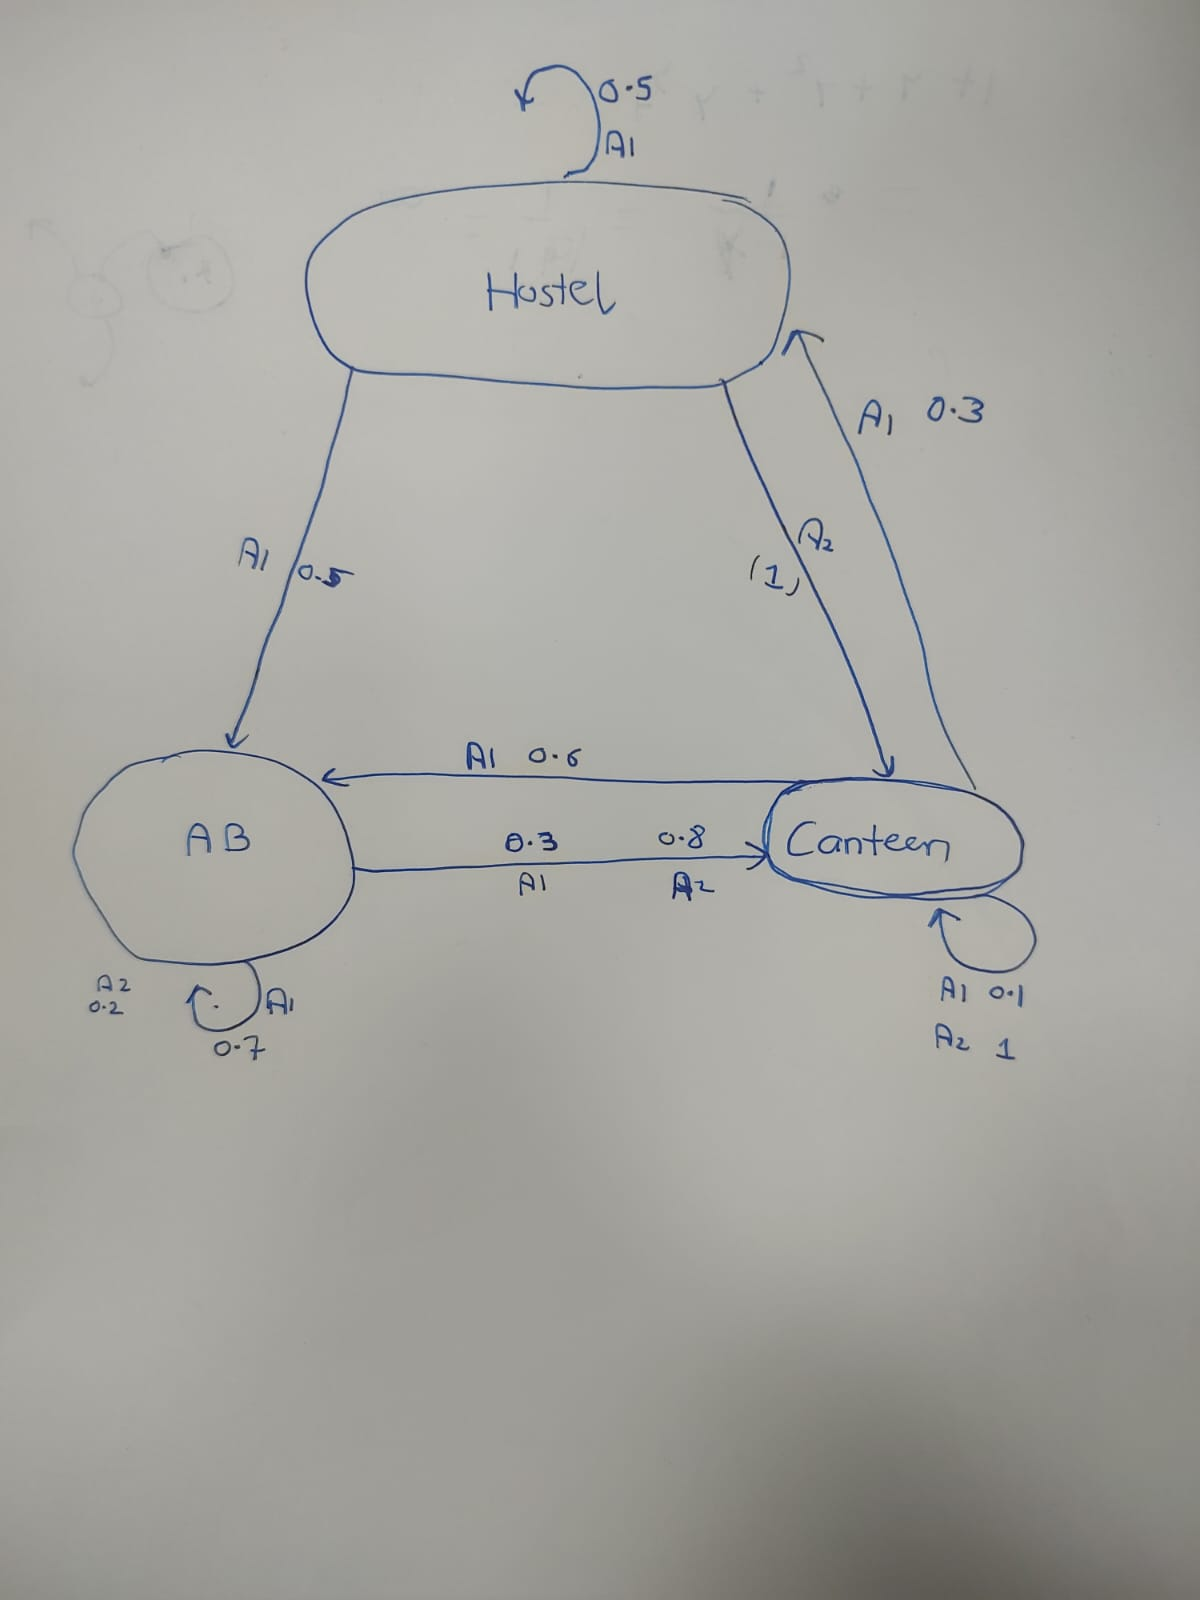 0.5
A1
Hostel
A1 0.3
A2
(1)
A1 0.5
A1 0.6
AB
0.3 0.8
A1 A2
Canteen
A2
0.2
A1
0.7
A1 0.1
A2 1